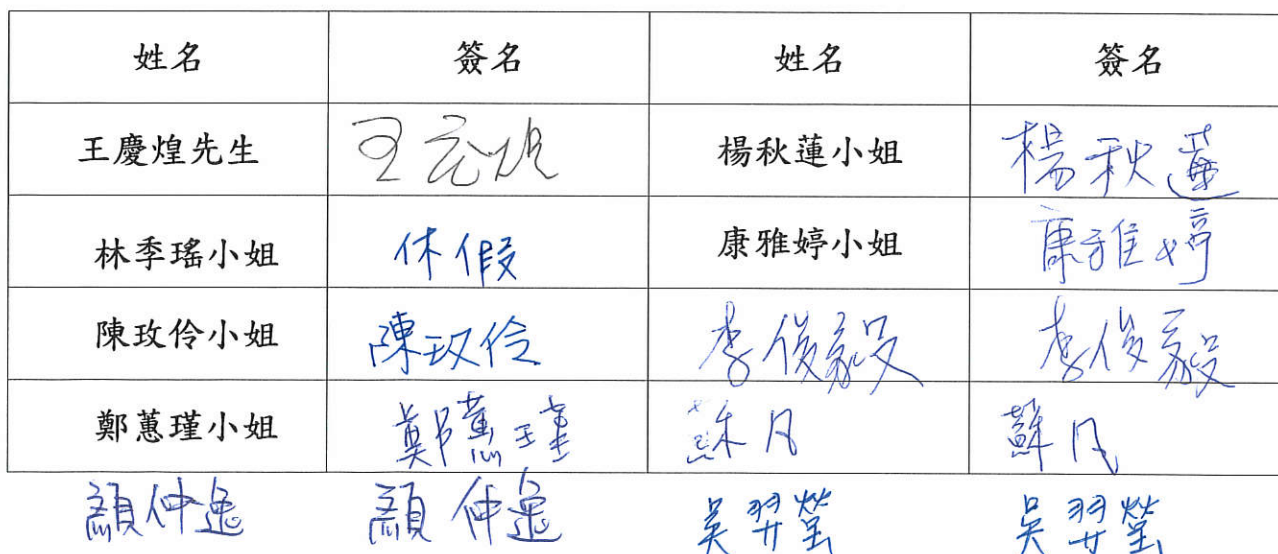 姓名 簽名 姓名 簽名
王慶煌先生 楊秋蓮小姐 楊秋蓮
林季瑤小姐 休假 康雅婷小姐 康雅婷
陳玫伶小姐 陳玫伶 李俊毅 李俊毅
鄭蕙瑾小姐 鄭蕙瑾 蘇凡 蘇凡
顏仲 顏仲 吳羿瑩 吳羿瑩